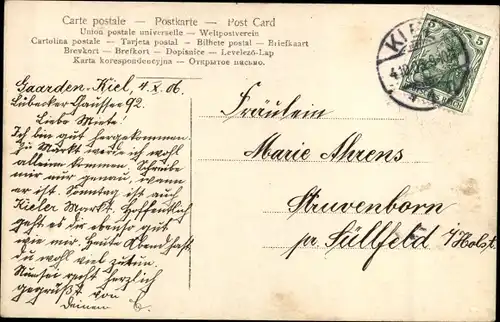 Carte postale – Postkarte – Post Card
Union postale universelle – Weltpostverein
Cartolina postale – Tarjeta postal – Bilhete postal – Briefkaart
Brevkort – Brefkort – Dopisnice – Levelező-Lap
Karta korespondencyjna – Открытое письмо.
KIEL
5 5
Gaarden, Kiel, 4.X.06.
Lübecker Chaussee 92.
Liebe Miete!
Ich bin gut hergekommen.
Zu Markt werde ich wohl
allein kommen, Schreibe
mir nur genau, wann
er ist. Sonntag ist auch
Kieler Markt. Hoffentlich
geht es dir ebenso gut
wie mir. Heute Abend hast
du wohl viel zutun.
Nun sei recht herzlich
gegrüßt von
deinem E.
Fräulein
Marie Ahrens
Struvenborn
pr. Süllfeld i/Holst.